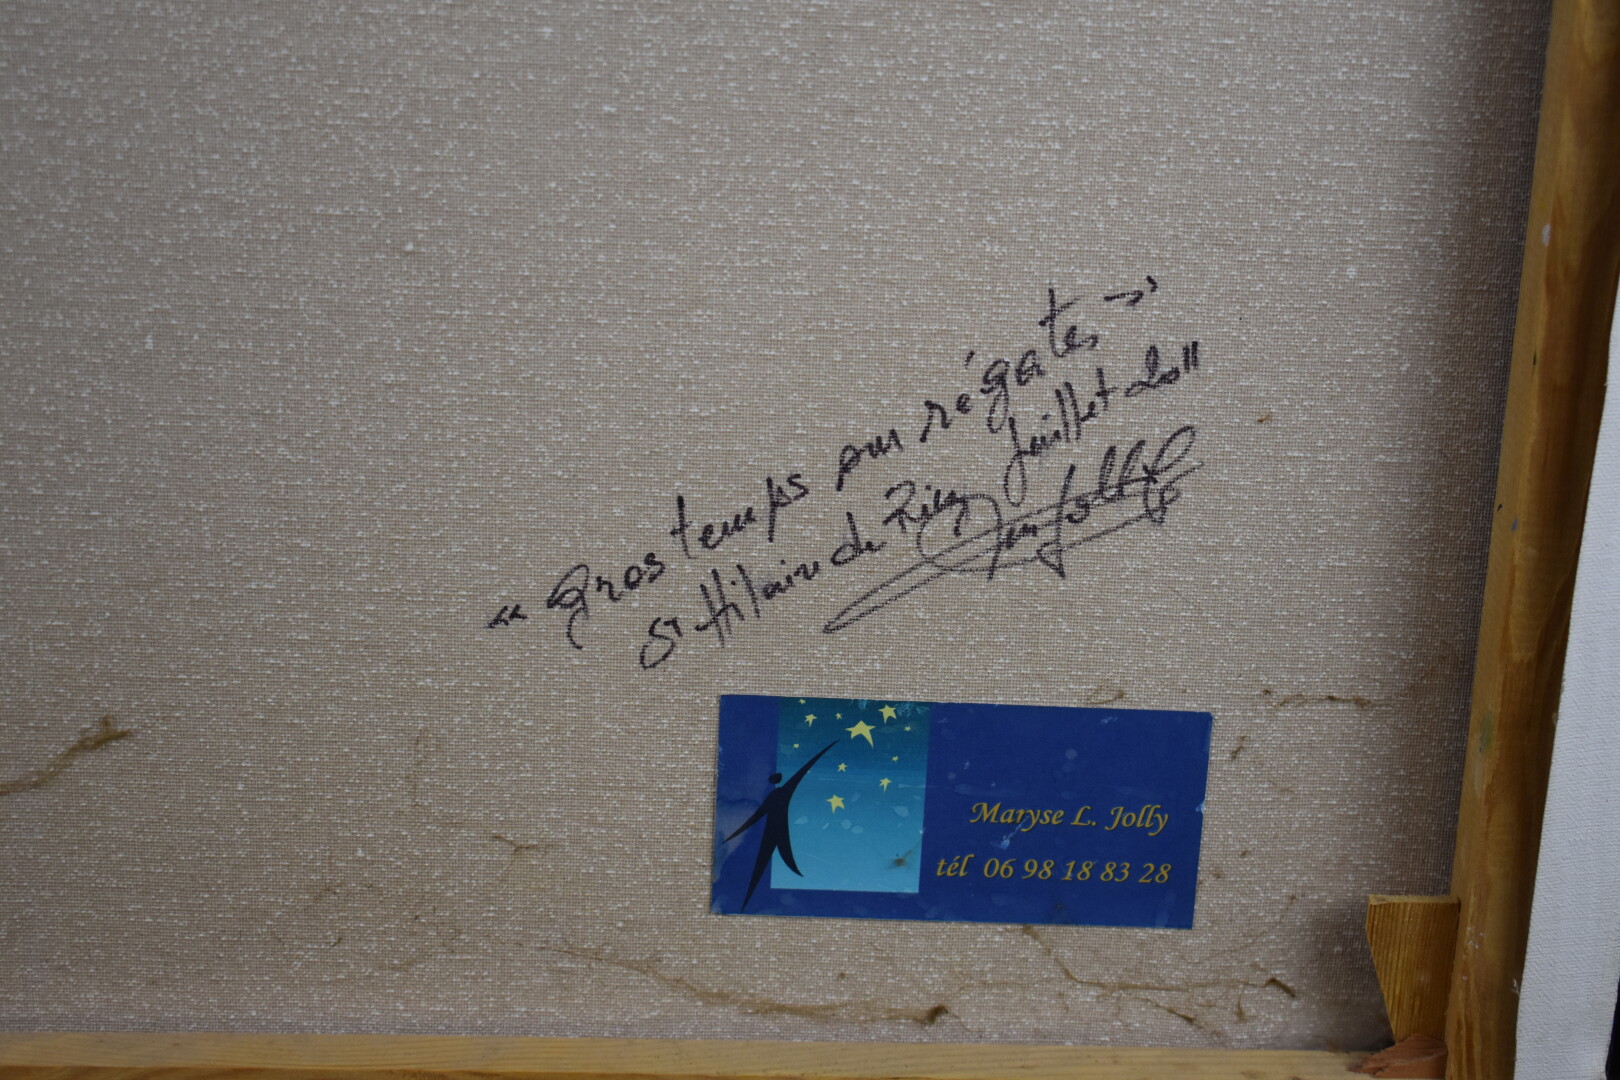 « Gros temps sur régates »
St Hilaire de Riez Juillet 2011
Jolly
Maryse L. Jolly
tél 06 98 18 83 28